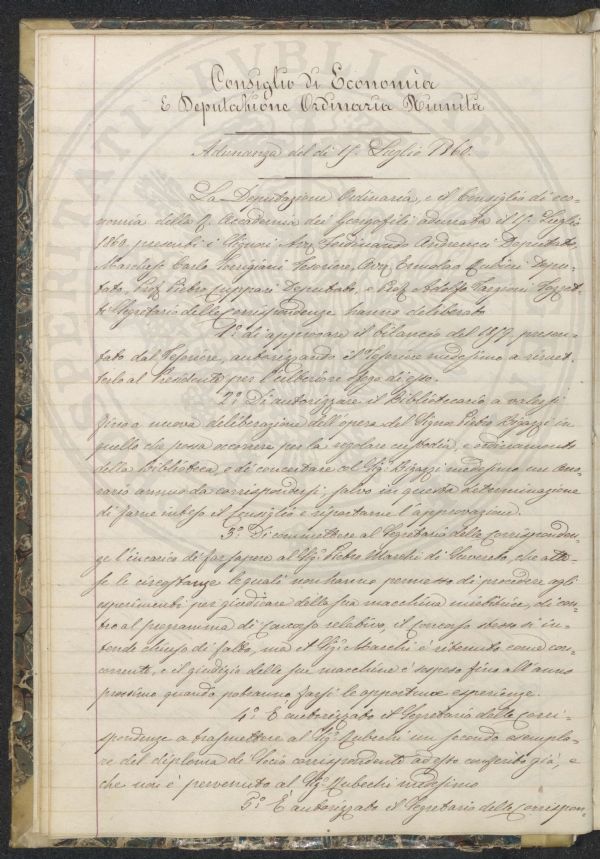 Consiglio di Economia
E Deputazione Ordinaria Riunita
Adunanza del dì 15. Luglio 1860.
La Deputazione Ordinaria, e il Consiglio di eco-
nomia della R. Accademia dei Georgofili adunata il 15 Luglio
1860, presenti i Signori Avv. Ferdinando Andreucci Deputato,
Marchese Carlo Torrigiani Tesoriere, Avv. Ermolao Rubieri Depu-
tato, Prof. Pietro Cuppari Deputato, e Prof. Adolfo Targioni Tozzet-
ti Segretario delle Corrispondenze hanno deliberato
1°. di approvare il bilancio del 1859. presen-
tato dal Tesoriere, autorizzando il Tesoriere medesimo a rimet-
terlo al Presidente per l'ulteriore sfogo di esso.
2°. Di autorizzare il Bibliotecario a valersi
fino a nuova deliberazione dell'opera del Signor Pietro Bigazzi in
quello che possa occorrere per la regolare custodia, e ordinamento
della biblioteca, e di concertare col Sig. Bigazzi medesimo un ono-
rario annuo da corrispondersi; salvo in questa determinazione
di farne inteso il Consiglio e riportarne l'approvazione.
3°. Di commettere al Segretario delle Corrisponden-
ze l'incarico di far sapere al Sig. Pietro Marchi di che atte-
se le circostanze le quali non hanno permesso di procedere agli
esperimenti per giudicare della sua macchina mietitrice, di con-
tro al programma di concorso relativo, il concorso stesso si in-
tende chiuso di fatto, ma il Sig. Marchi è ritenuto come con-
corrente, e il giudizio delle sue macchine è sospeso fino all'anno
prossimo quando potranno farsi le opportune esperienze.
4°. È autorizzato il Segretario delle Corri-
spondenze a trasmettere al Sig. Rubechi un secondo esempla-
re del diploma di Socio corrispondente ad esso conferito già, e
che non è pervenuto al Sig. Rubechi medesimo
5°. È autorizzato il Segretario delle Corrispon-